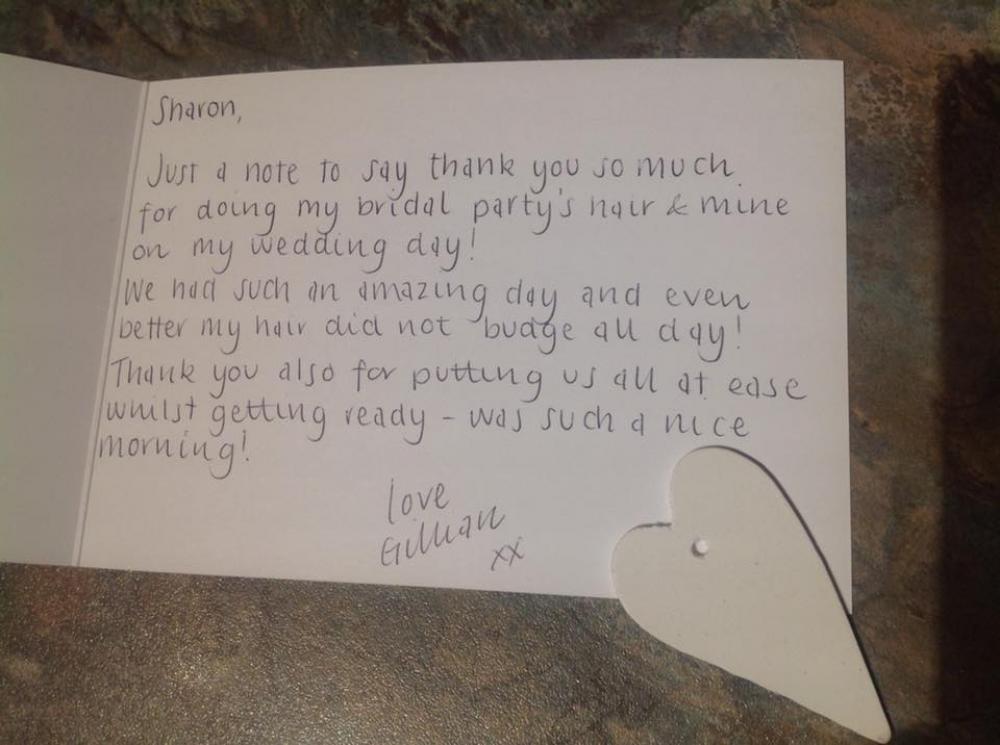 Sharon,
Just a note to say thank you so much
for doing my bridal party's hair & mine
on my wedding day!
We had such an amazing day and even
better my hair did not budge all day!
Thank you also for putting us all at ease
whilst getting ready - was such a nice
morning!
love
Gillian
xx